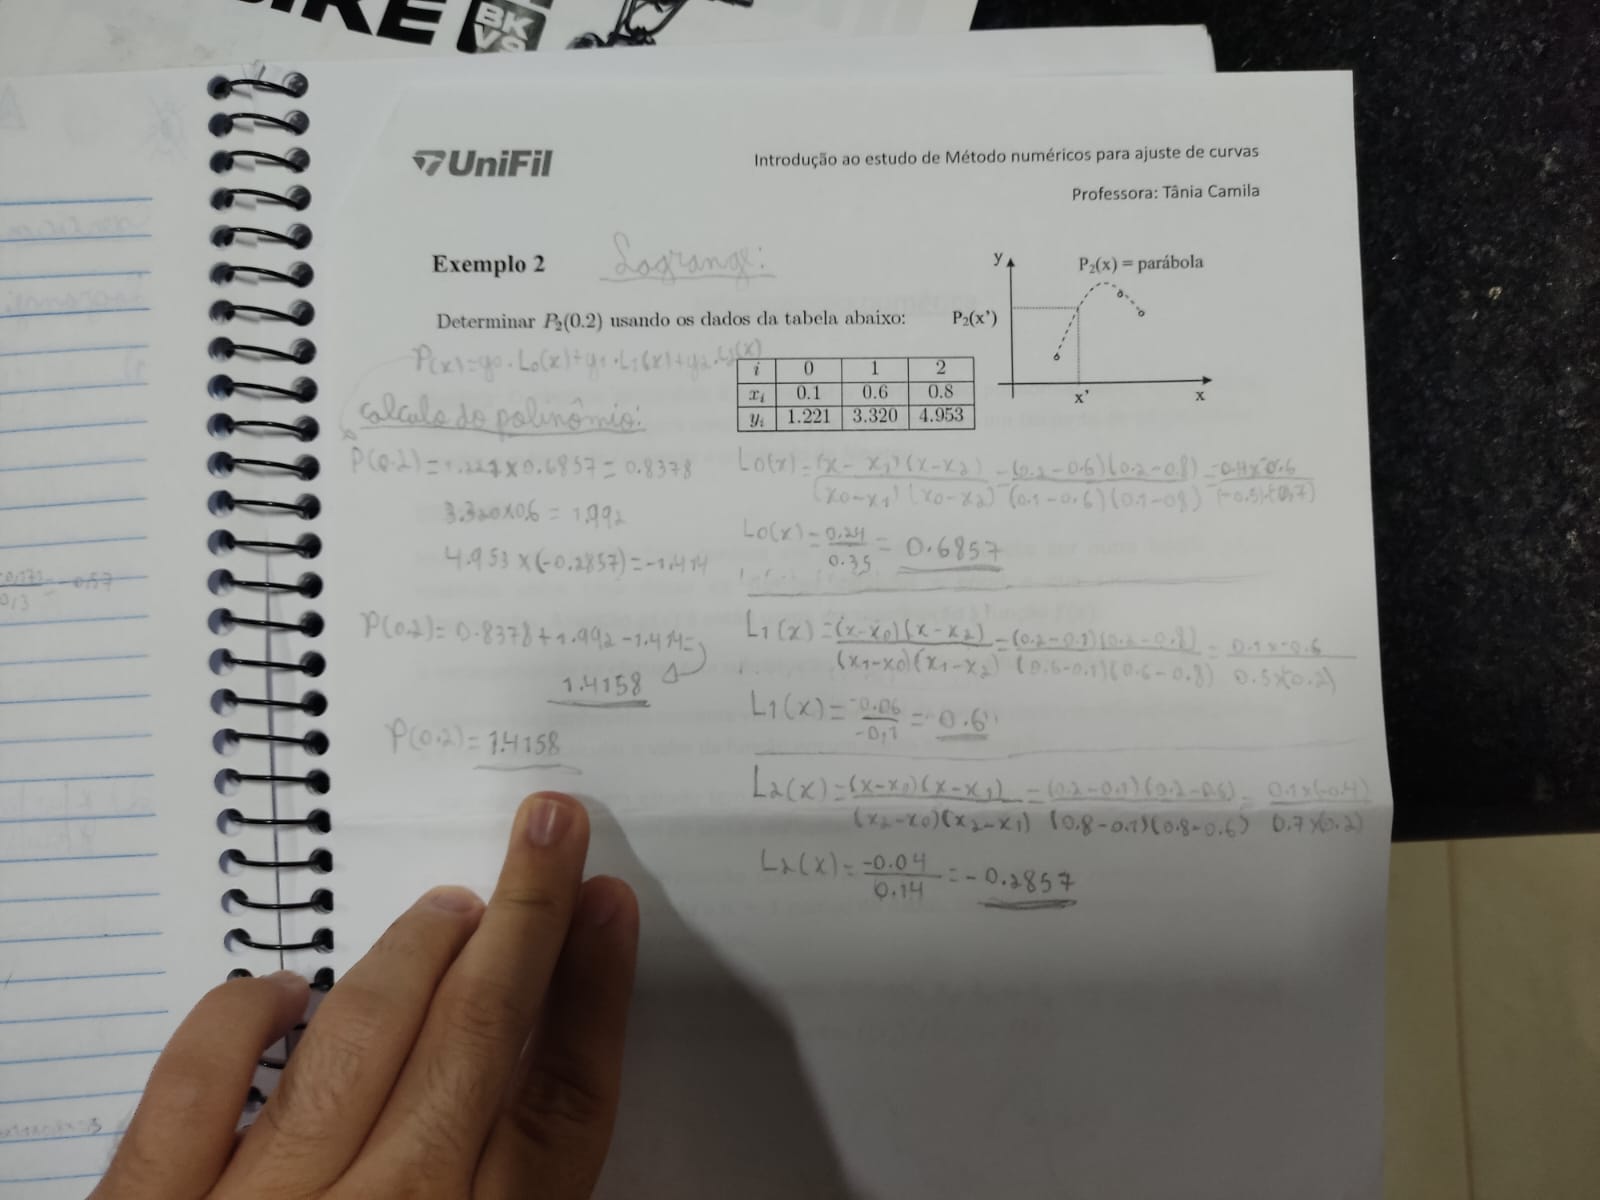 BK
UniFil
Introdução ao estudo de Método numéricos para ajuste de curvas
Professora: Tânia Camila
Exemplo 2
Lagrange:
Determinar P₂(0.2) usando os dados da tabela abaixo:
P(x)=y0.L0(x)+y1.L1(x)+y2.L2(x)
i 0 1 2
xᵢ 0.1 0.6 0.8
yᵢ 1.221 3.320 4.953
y
P₂(x) = parábola
P₂(x')
x'
x
calculo do polinômio:
P(0.2)=1.221x0.6857=0.8378
3.320x0.6=1.992
4.953x(-0.2857)=-1.414
P(0.2)=0.8378+1.992-1.414=
1.4158
P(0.2)=1.4158
L0(x)=(x-x1)(x-x2)/(x0-x1)(x0-x2)=(0.2-0.6)(0.2-0.8)/(0.1-0.6)(0.1-0.8)
L0(x)=0.24/0.35=0.6857
L1(x)=(x-x0)(x-x2)/(x1-x0)(x1-x2)=(0.2-0.1)(0.2-0.8)/(0.6-0.1)(0.6-0.8)=0.1x-0.6/0.5x(0.2)
L1(x)=-0.06/-0,1=0.6
L2(x)=(x-x0)(x-x1)/(x2-x0)(x2-x1)=(0.2-0.1)(0.2-0.6)/(0.8-0.1)(0.8-0.6)=0.1x(-0.4)/0.7x(0.2)
L2(x)=-0.04/0.14=-0.2857